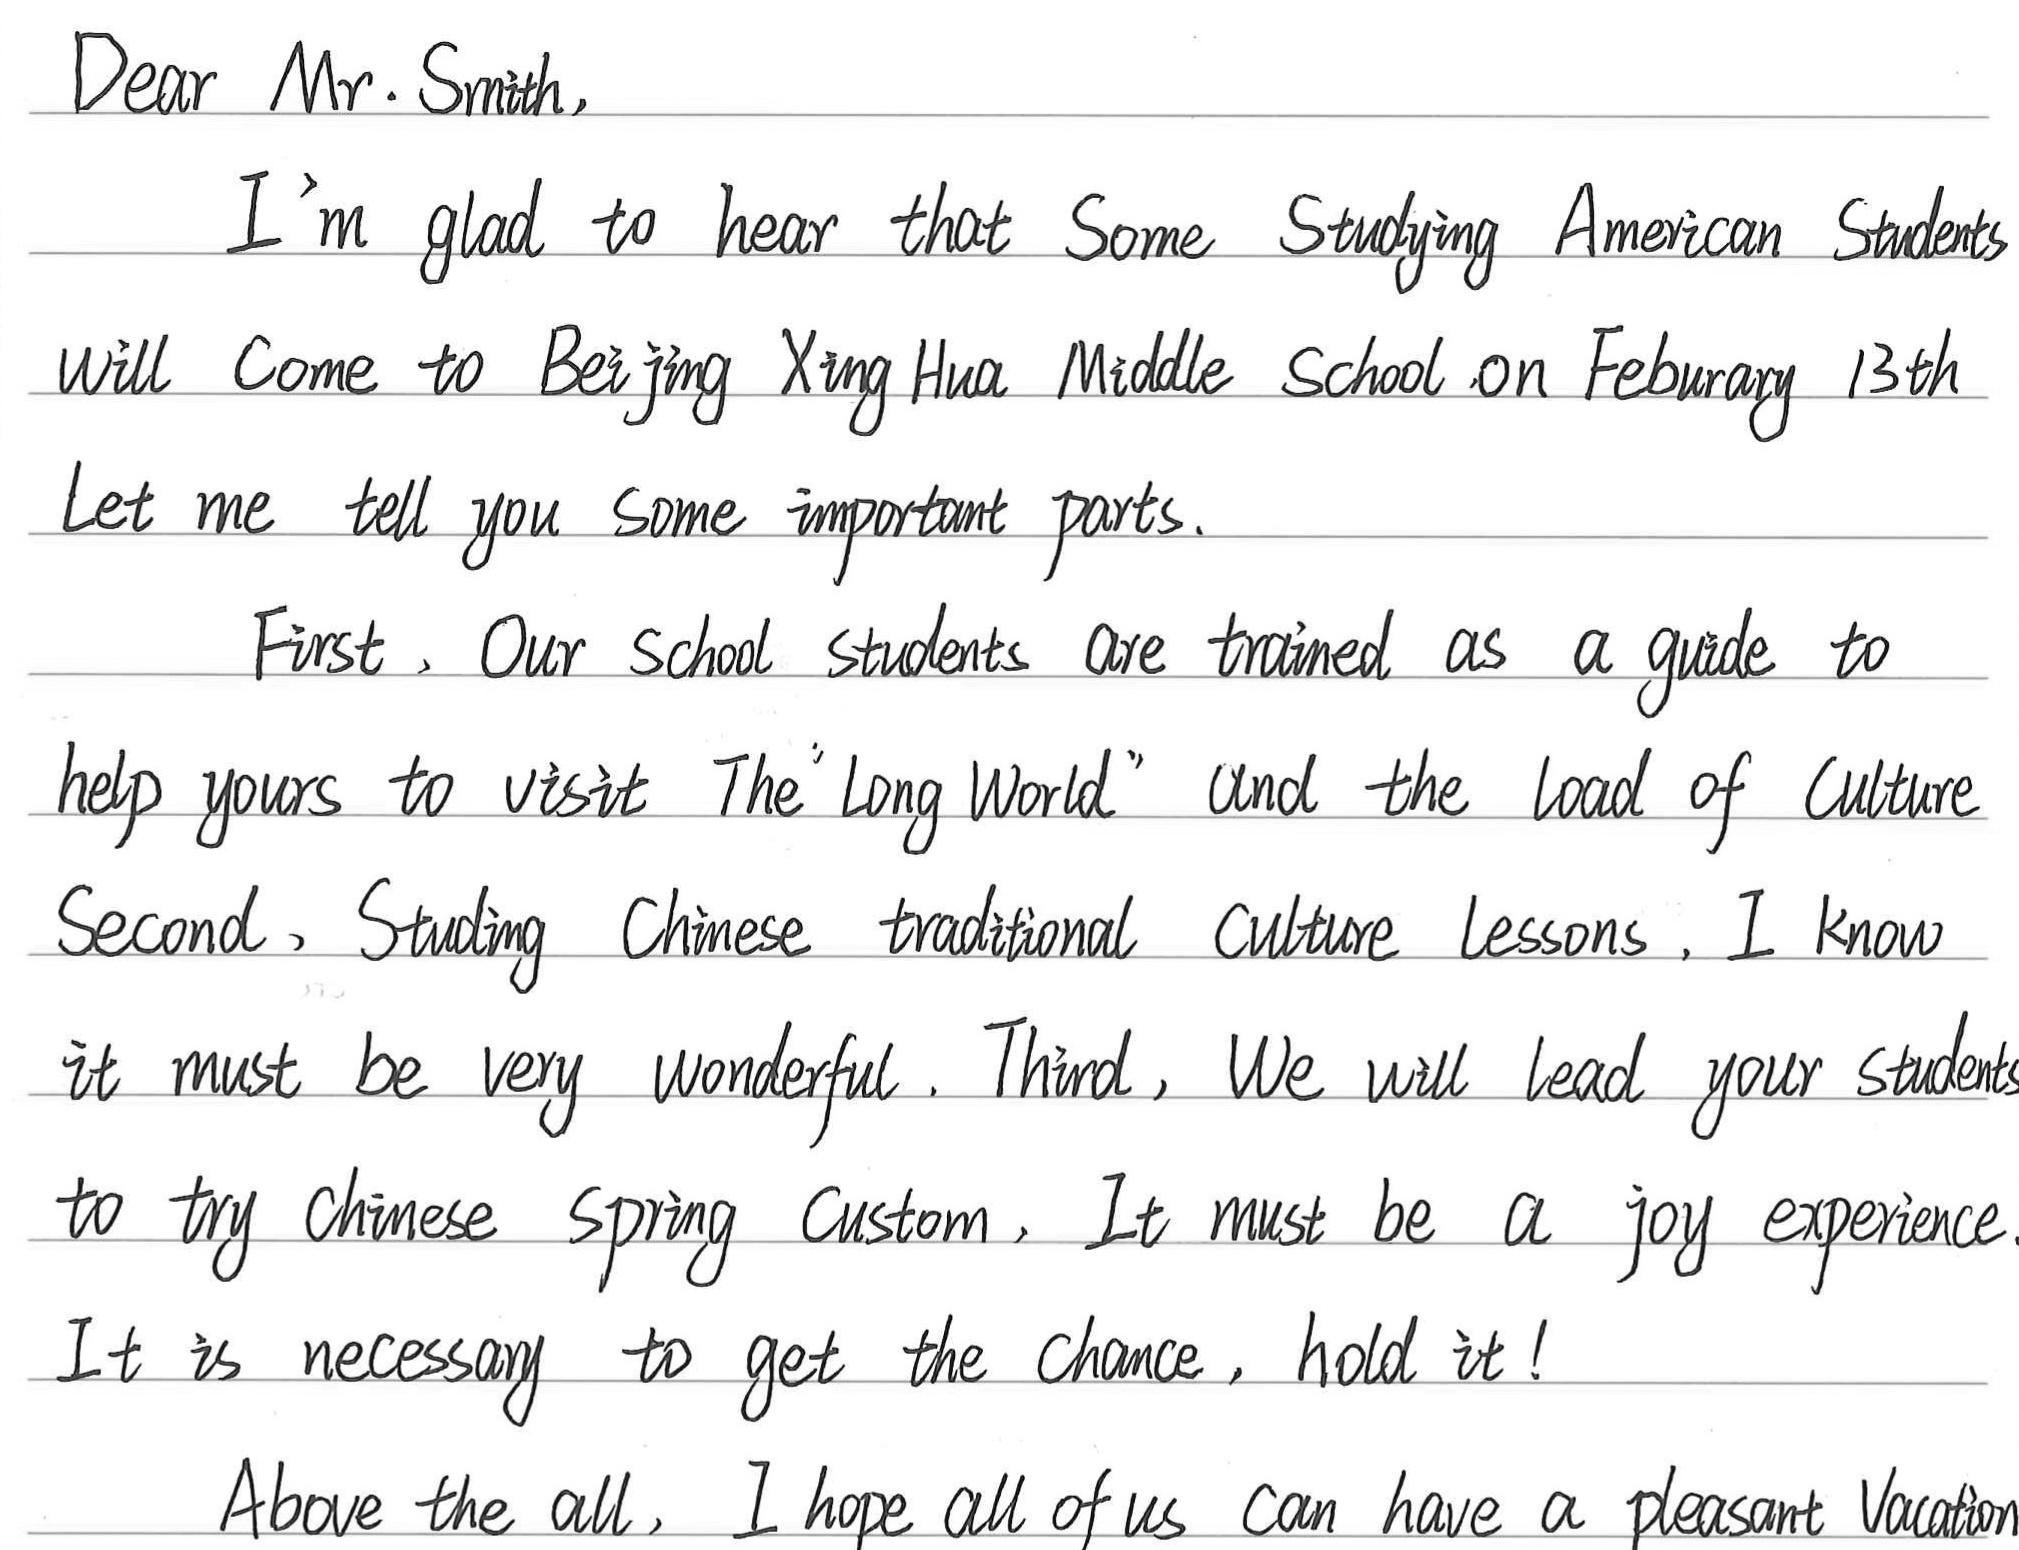 Dear Mr. Smith,
I'm glad to hear that Some Studying American Students
will Come to Beijing Xing Hua Middle School on Feburary 13th
Let me tell you some important parts.
First, Our school students are trained as a guide to
help yours to visit The "Long World" and the load of Culture
Second, Studing Chinese traditional Culture lessons, I know
it must be very wonderful. Third, We will lead your students
to try Chinese Spring Custom, It must be a joy experience.
It is necessary to get the chance, hold it!
Above the all, I hope all of us can have a pleasant Vacation